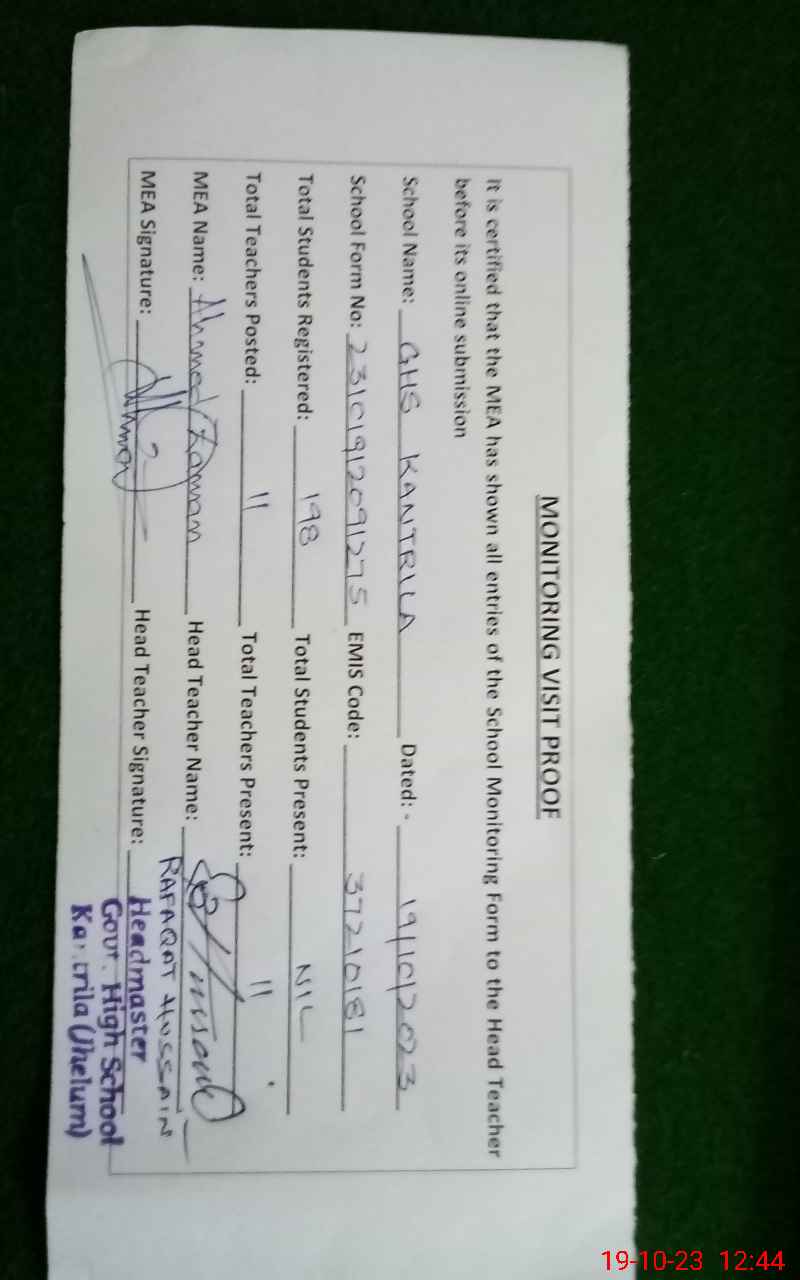 MONITORING VISIT PROOF
It is certified that the MEA has shown all entries of the School Monitoring Form to the Head Teacher
before its online submission
School Name: GHS KANTRILA Dated: - 19/10/2023
School Form No: 23101912091275 EMIS Code: 37210181
Total Students Registered: 198 Total Students Present: NIL
Total Teachers Posted: 11 Total Teachers Present: 11
MEA Name: Ahmed Zaman Head Teacher Name: RAFAQAT HUSSAIN
MEA Signature: Head Teacher Signature:
Headmaster
Govt. High School
Kantrila (Jhelum)
19-10-23 12:44